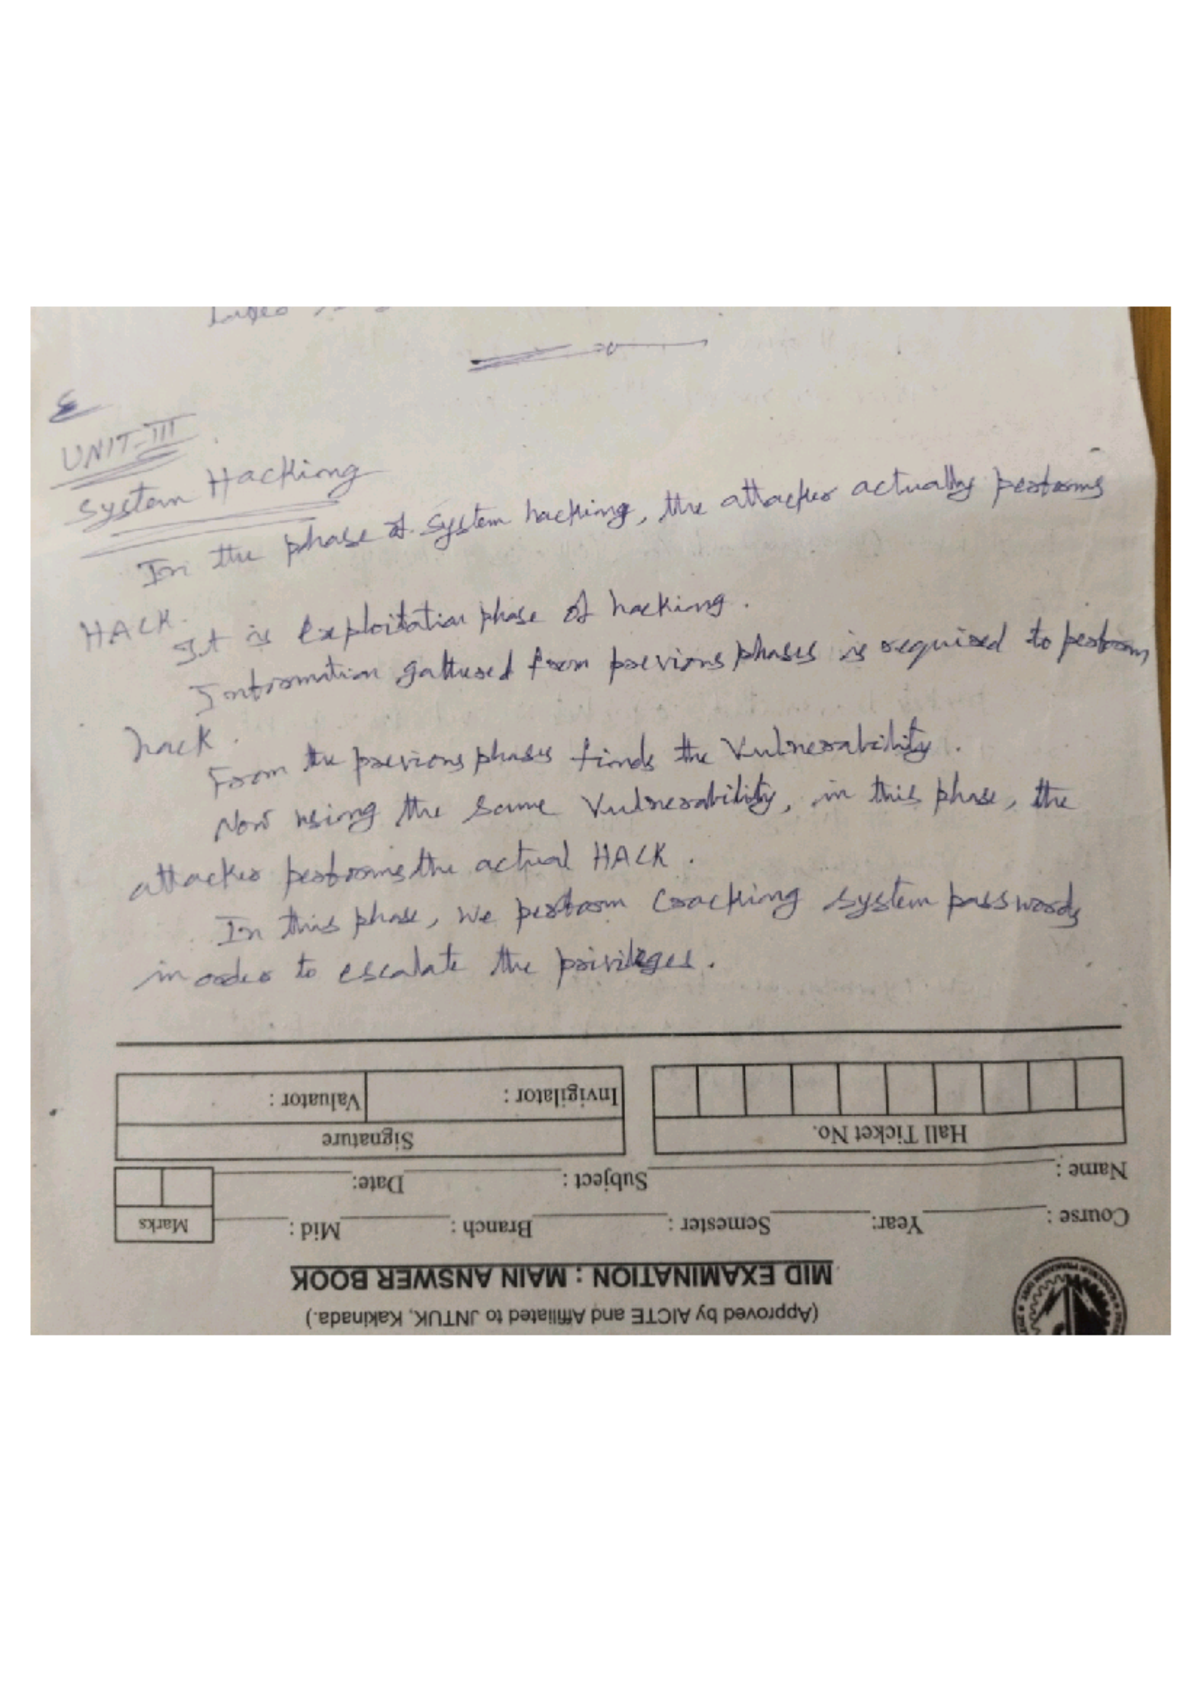 UNIT-III
System Hacking
In the phase of system hacking, the attacker actually performs
HACK.
It is exploitation phase of hacking.
Information gathered from previous phases is required to perform
hack.
From the previous phases finds the Vulnerability.
Now using the same Vulnerability, in this phase, the
attacker performs the actual HACK.
In this phase, we perform cracking system passwords
in order to escalate the privileges.
(Approved by AICTE and Affiliated to JNTUK, Kakinada.)
MID EXAMINATION : MAIN ANSWER BOOK
Course : Year: Semester : Branch : Mid : Marks
Name : Subject : Date:
Hall Ticket No. Signature
Invigilator : Valuator :